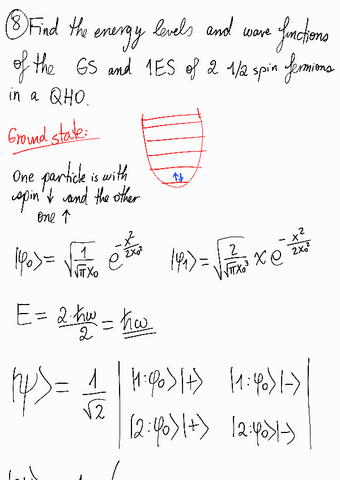 ⑧ Find the energy levels and wave functions
of the GS and 1ES of 2 1/2 spin fermions
in a QHO.
Ground state:
↑↓
One particle is with
spin ↓ and the other
one ↑
|φ₀⟩ = √(1/(√π x₀)) e^(-x²/(2x₀²)) |φ₁⟩ = √(2/(√π x₀³)) x e^(-x²/(2x₀²))
E = 2·ħω/2 = ħω
|ψ⟩ = 1/√2 | |1:φ₀⟩|+⟩ |1:φ₀⟩|−⟩ |
| |2:φ₀⟩|+⟩ |2:φ₀⟩|−⟩ |